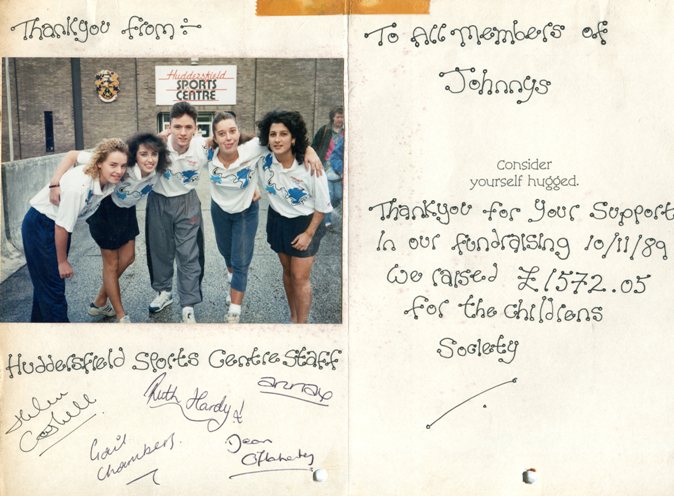 Thankyou from :-
Huddersfield
SPORTS
CENTRE
Huddersfield Sports Centre Staff
Helen
Ruth Hardy
Gail
Chambers.
Dean
O'flaherty
To All Members of
Johnnys
Consider
yourself hugged.
Thankyou for your Support
In our fundraising 10/11/89
We raised £1572.05
for the Childrens
Society